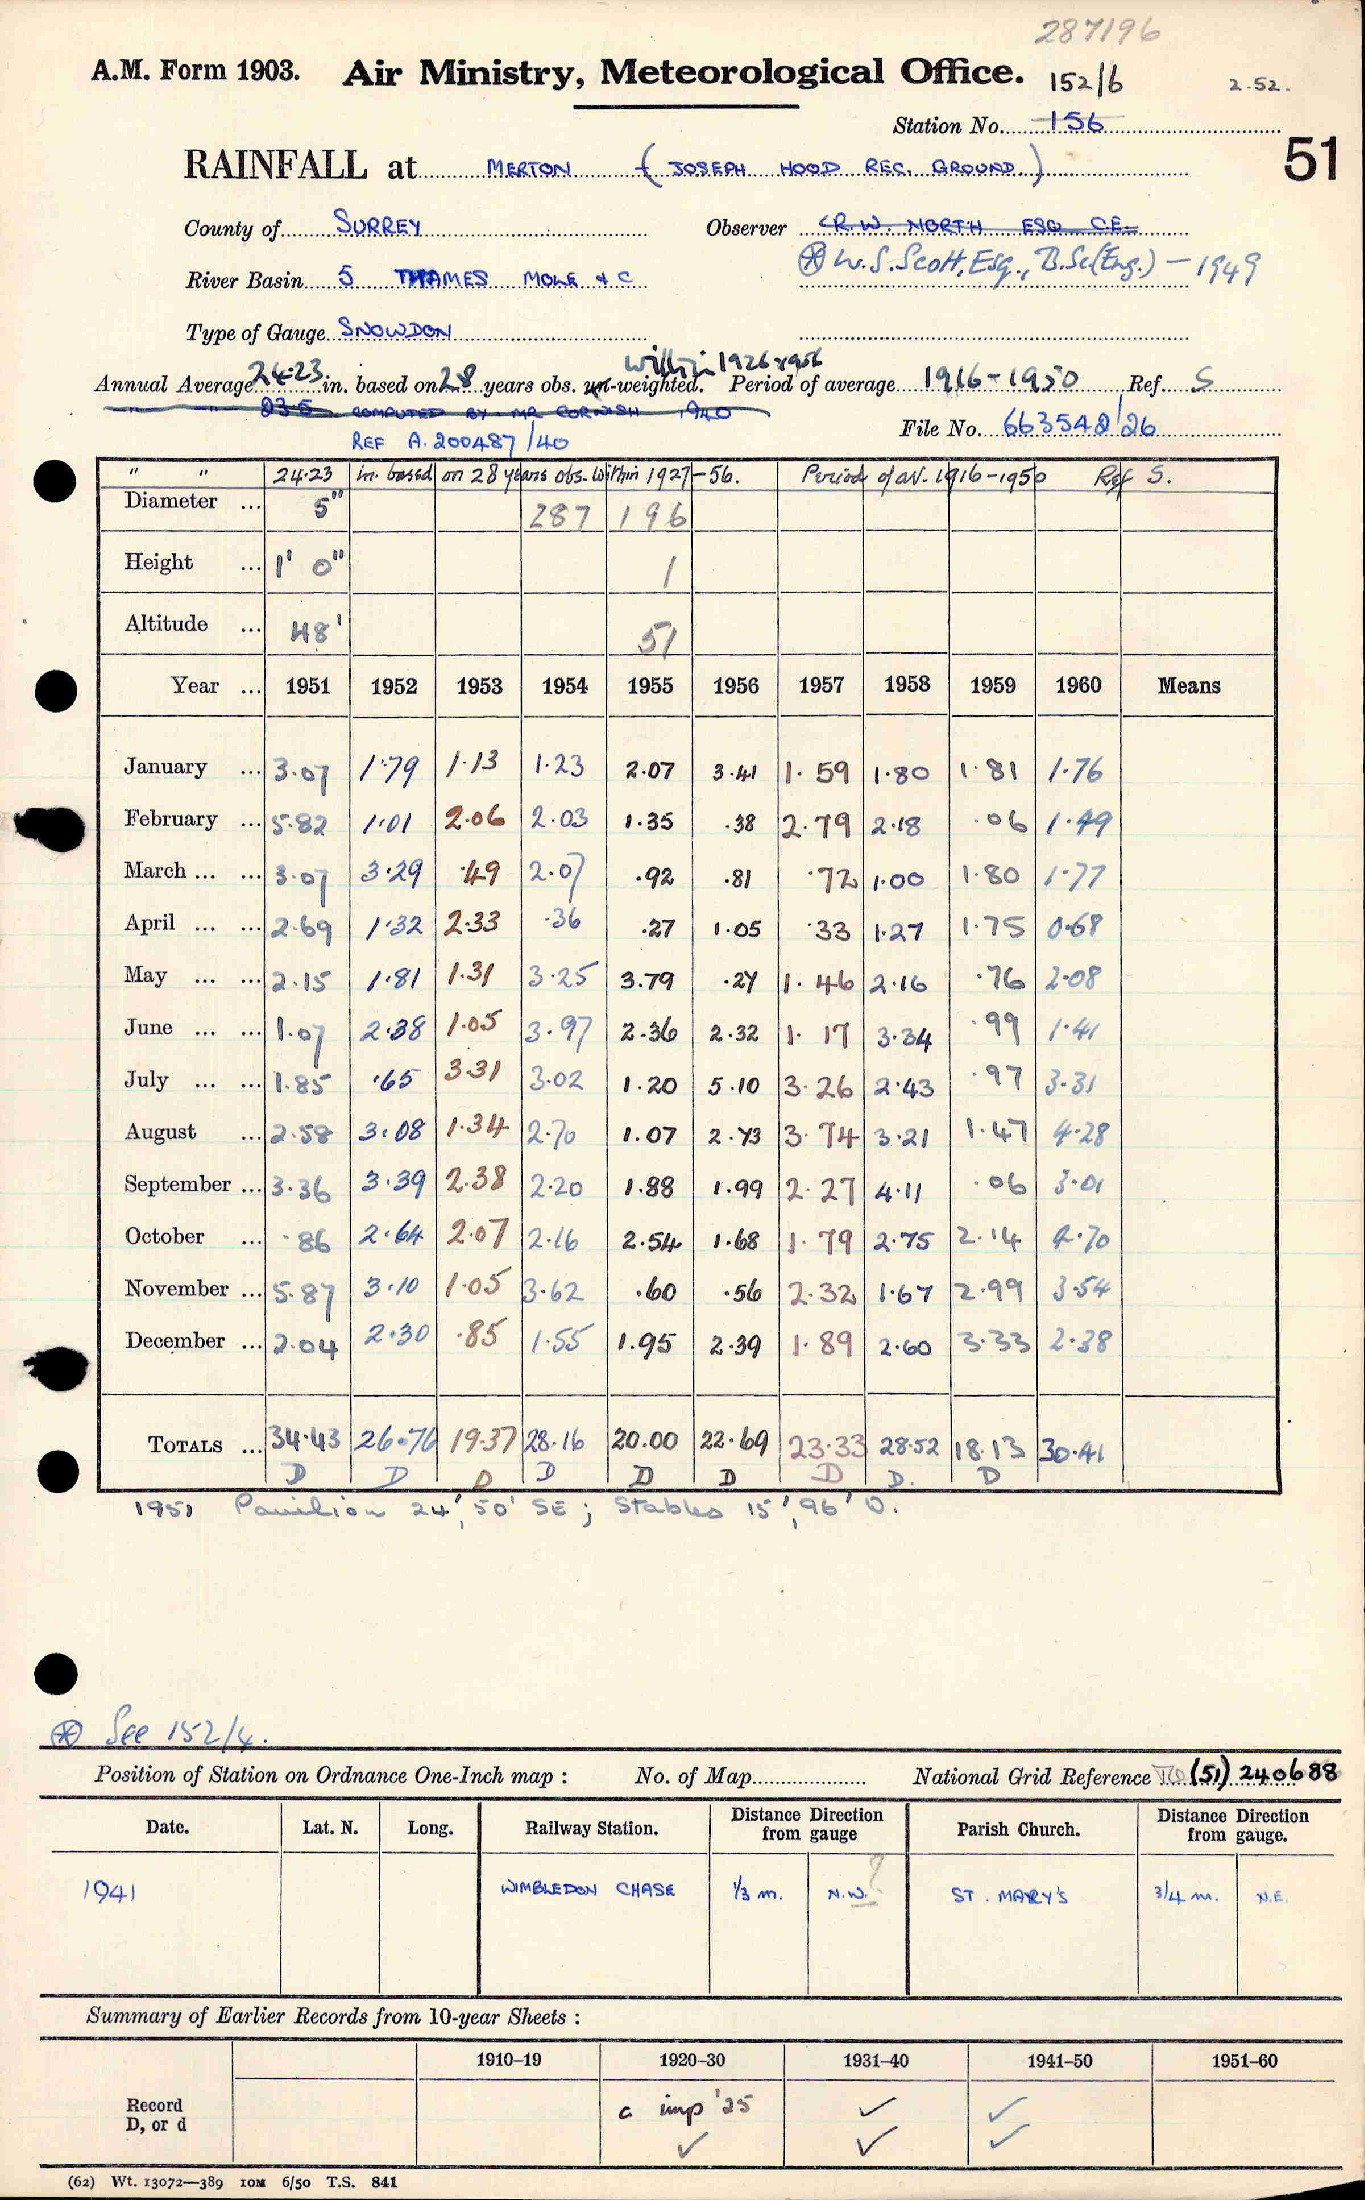 287196
A.M. Form 1903. Air Ministry, Meteorological Office. 152/6 2.52.
Station No. 156
51
RAINFALL at MERTON (JOSEPH HOOD REC. GROUND.)
County of SURREY Observer R.W. NORTH ESQ C.E.
River Basin 5 THAMES MOLE & C ⊛ W.S. Scott, Esq., B.Sc.(Eng.) - 1949
Type of Gauge SNOWDON
within 1926 1956
Annual Average 24.23 in. based on 28 years obs. un-weighted. Period of average 1916-1950 Ref. S
" " 23.5 COMPUTED BY MR CORNISH 1940
REF A.200487/40 File No. 663542/26
" " 24.23 in. based on 28 years obs. within 1927-56. Period of av. 1916-1950 Ref S.
Diameter ... 5" 287 196
Height ... 1' 0" 1
Altitude ... 48' 51
Year ... 1951 1952 1953 1954 1955 1956 1957 1958 1959 1960 Means
January ... 3.07 1.79 1.13 1.23 2.07 3.41 1.59 1.80 1.81 1.76
February ... 5.82 1.01 2.06 2.03 1.35 .38 2.79 2.18 .06 1.49
March ... ... 3.07 3.29 .49 2.07 .92 .81 .72 1.00 1.80 1.77
April ... ... 2.69 1.32 2.33 .36 .27 1.05 .33 1.27 1.75 0.68
May ... ... 2.15 1.81 1.31 3.25 3.79 .27 1.46 2.16 .76 2.08
June ... ... 1.07 2.38 1.05 3.97 2.36 2.32 1.17 3.34 .99 1.41
July ... ... 1.85 .65 3.31 3.02 1.20 5.10 3.26 2.43 .97 3.31
August ... 2.58 3.08 1.34 2.70 1.07 2.73 3.74 3.21 1.47 4.28
September ... 3.36 3.39 2.38 2.20 1.88 1.99 2.27 4.11 .06 3.01
October ... .86 2.64 2.07 2.16 2.54 1.68 1.79 2.75 2.14 4.70
November ... 5.87 3.10 1.05 3.62 .60 .56 2.32 1.67 2.99 3.54
December ... 2.04 2.30 .85 1.55 1.95 2.39 1.89 2.60 3.33 2.38
TOTALS ... 34.43 26.76 19.37 28.16 20.00 22.69 23.33 28.52 18.13 30.41
D D D D D D D D. D
1951 Pavilion 24', 50' SE; Stables 15', 96' O.
⊛ See 152/4.
Position of Station on Ordnance One-Inch map : No. of Map National Grid Reference TQ (51) 240688
Date. Lat. N. Long. Railway Station. Distance Direction from gauge Parish Church. Distance Direction from gauge.
1941 WIMBLEDON CHASE 1/3 m. N.W. ? ST. MARY'S 3/4 m. N.E.
Summary of Earlier Records from 10-year Sheets :
1910–19 1920–30 1931–40 1941–50 1951–60
Record c imp '25 ✓ ✓
D, or d ✓ ✓ ✓
(62) Wt. 13072—389 10M 6/50 T.S. 841